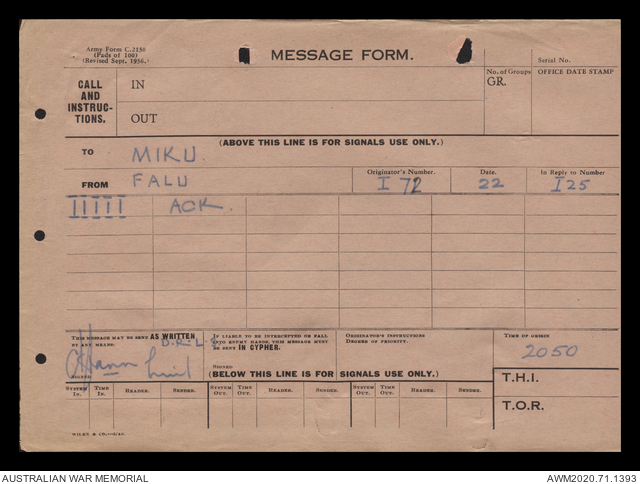 Army Form C.2150
(Pads of 100)
(Revised Sept. 1936.)
MESSAGE FORM.
Serial No.
CALL AND INSTRUC-TIONS.
IN
OUT
No. of Groups
GR.
OFFICE DATE STAMP
(ABOVE THIS LINE IS FOR SIGNALS USE ONLY.)
TO MIKU.
FROM FALU
Originator's Number. I 72
Date. 22
In Reply to Number I 25
IIIII ACK.
THIS MESSAGE MAY BE SENT AS WRITTEN
BY ANY MEANS.
D.R.L.S
SIGNED
IF LIABLE TO BE INTERCEPTED OR FALL
INTO ENEMY HANDS, THIS MESSAGE MUST
BE SENT IN CYPHER.
SIGNED
ORIGINATOR'S INSTRUCTIONS
DEGREE OF PRIORITY.
TIME OF ORIGIN
2050
(BELOW THIS LINE IS FOR SIGNALS USE ONLY.)
T.H.I.
T.O.R.
SYSTEM IN. TIME IN. READER. SENDER. SYSTEM OUT. TIME OUT. READER. SENDER. SYSTEM OUT. TIME OUT. READER. SENDER.
AUSTRALIAN WAR MEMORIAL
AWM2020.71.1393